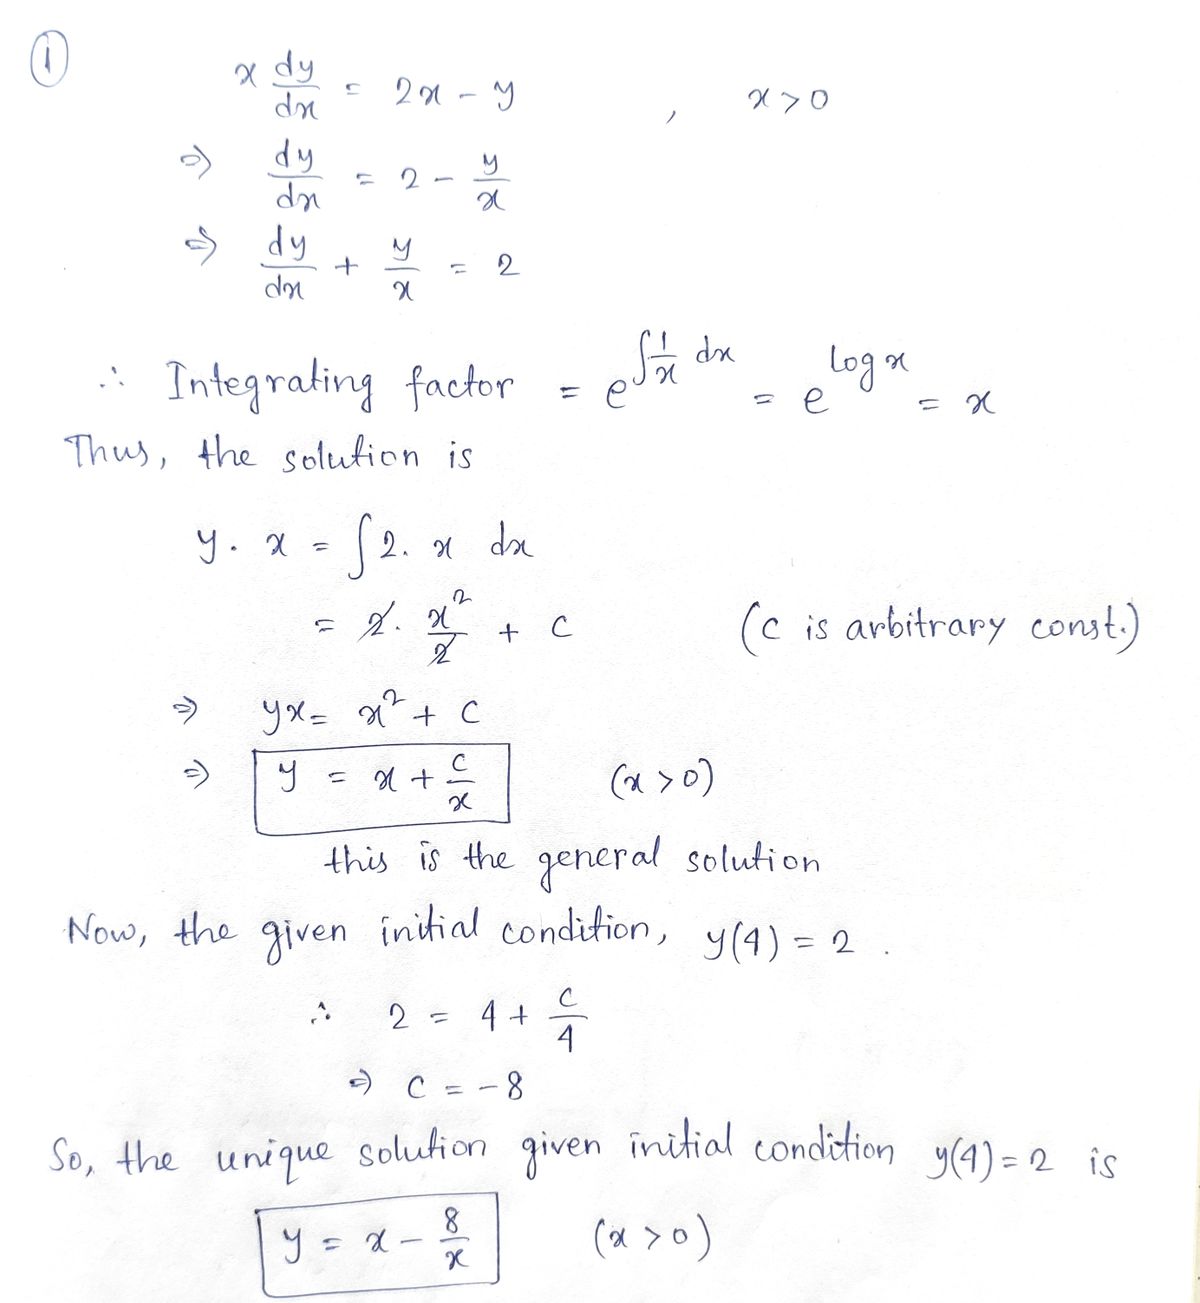 ①
x dy/dx = 2x - y , x > 0
⇒ dy/dx = 2 - y/x
⇒ dy/dx + y/x = 2
∴ Integrating factor = e^{∫ 1/x dx} = e^{log x} = x
Thus, the solution is
y . x = ∫ 2 . x dx
= 2 . x²/2 + c (c is arbitrary const.)
⇒ yx = x² + c
⇒ y = x + c/x (x > 0)
this is the general solution
Now, the given initial condition, y(4) = 2 .
∴ 2 = 4 + c/4
⇒ c = -8
So, the unique solution given initial condition y(4) = 2 is
y = x - 8/x (x > 0)